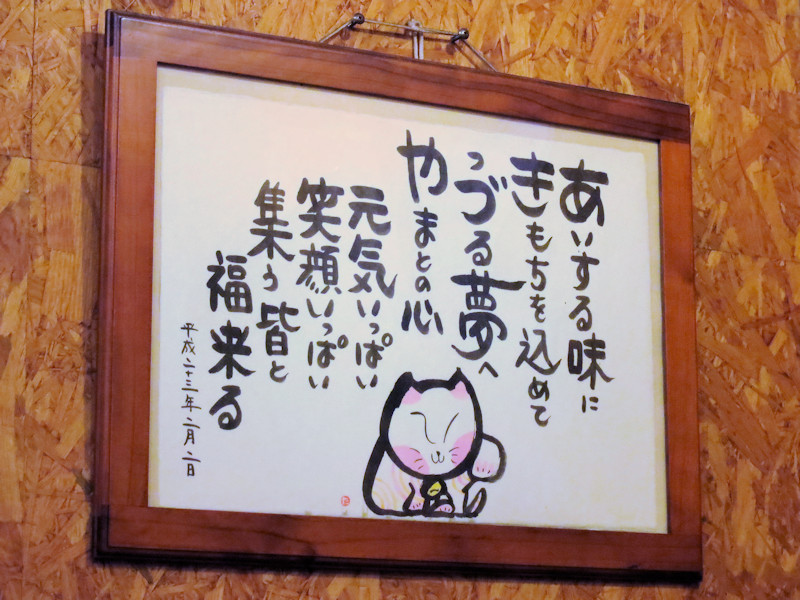 あいする味に
きもちを込めて
つづる夢へ
やまとの心
元気いっぱい
笑顔いっぱい
集う皆と
福来る
平成二十三年二月二日